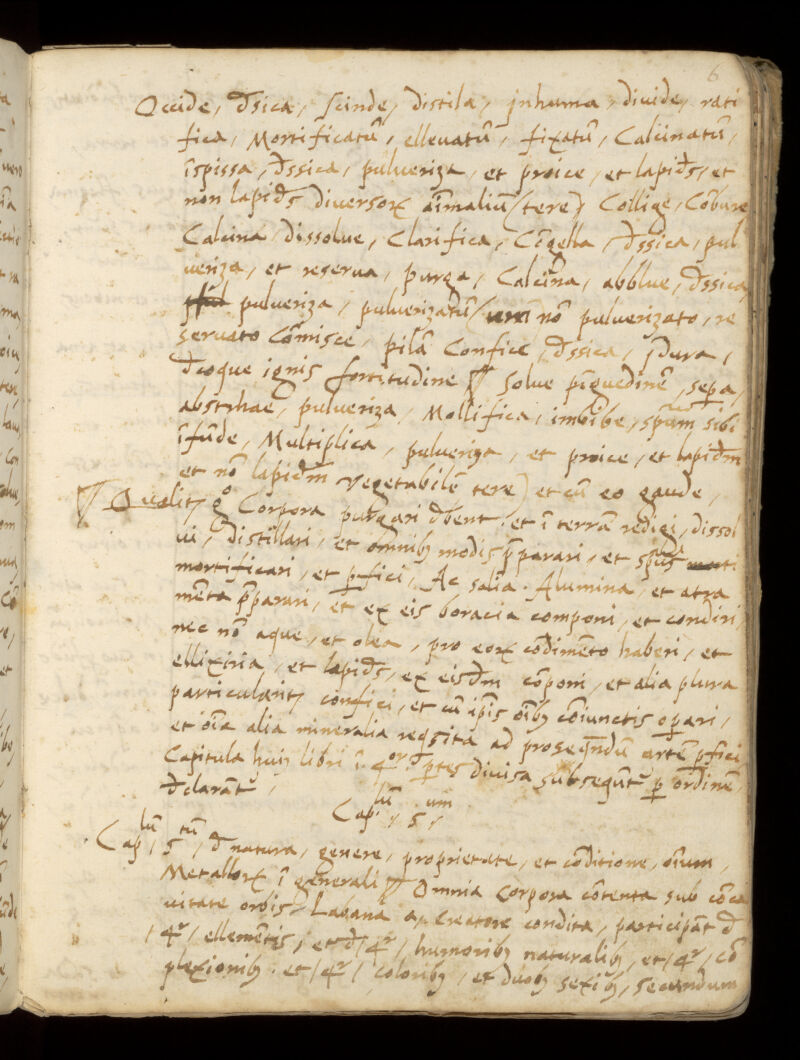 6
Occide, d̄sica, scinde, distila, inhuma, diuide, rati
fica, Mortificatū, elleuatū, fixatū, Calcinatū,
īspissa, d̄ssica, pulueriza, et proice, et lapid̄s, et
non lapid̄s diuersorꝝ aīmaliū (tere) Collige, Cōbure
Calcina dissolue, Clarifica, Cōgella, d̄ssica, pul
ueriza, et reserua, purga, Calcina, abblue, d̄ssica
pulueriza, puluerizatū nō puluerizato, re
seruato Cōmisce, pilā Confice, d̄ssica, īdura,
d̄coque ignis fortitudine ¶ Solue pīguedinē, sepa,
abstrhae, pulueriza, Mollifica, imbibe, spūm sibi
īfūde, Multiplica, pulueriza, et proice, et lapid̄m
et nō lapid̄m vegetabilē tere) et cū eo gaude,
¶ Qualitꝫ gº Corpora purgari d̄bent, et ī terrā redigi, dissol
ui, distillari, et omnibꝫ modis p̄parari, et spūs
mortificari, et ꝑfici, Ac salia. Alumina, et atra
mēta p̄parari, et ex eis boracia componi, et condiri,
nec nō aque, et olea, pro eorꝝ cōdimēto haberi, et
ellixiria, et lapid̄s, ex eisd̄m cōponi, et alia plura
particularitꝫ confici, et cū ip̄is oībꝫ cōiunctis oꝑari,
et oīa alia mineralia reqsita ad proseqn̄dū artē ꝑfici
Capitula huiꝫ libri ī 4or ꝑtes diuisa subsequt̄ ꝑ ordinē,
d̄clarant̄,
Cap:lū, 5um,
Caplū, 5tū, d̄ natura, genere, proprietate, et cōditione, oīum,
Metallorꝝ ī generali ¶ Omnia Corpora cōtenta sub cōca
uitate orbis Creatore condita, participāt d̄
/4r/ ellemētis, et d̄ /4r/ humoribꝫ naturalibꝫ, et /4r/ cō
plexionibꝫ: et /4r/ coloribꝫ, et duobꝫ sexibꝫ, secundum